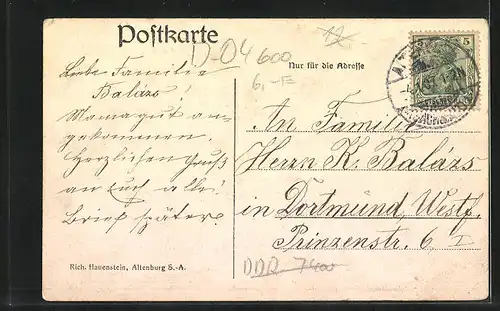 Postkarte
D-04600
12
6,-E
Nur für die Adresse
5
Liebe Familie
Balázs!
Mama gut an-
gekommen.
Herzlichen Gruß
an Euch alle!
Brief später.
An Familie
Herrn K. Balázs
in Dortmund, Westf.
Prinzenstr. 6 I
Rich. Hauenstein, Altenburg S.-A.
DDR 7400